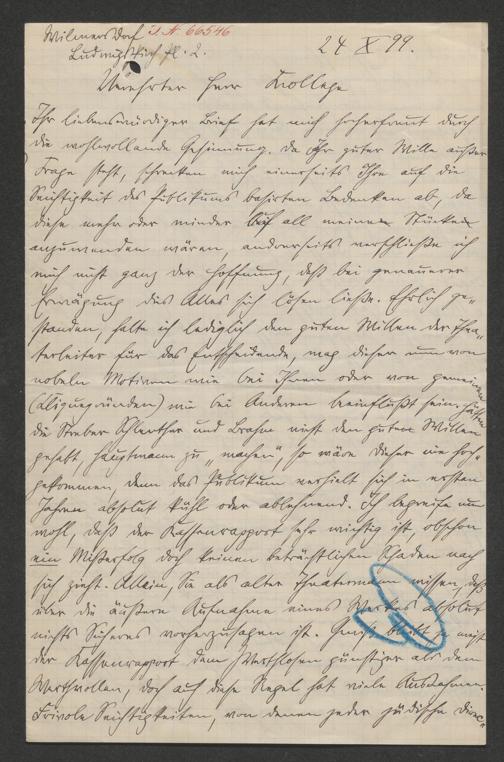 Wilmersdorf i. N. 66546
Ludwigkirchpl. 2. 24 X 99.
Verehrter Herr Kollege
Ihr liebenswürdiger Brief hat mich hocherfreut durch
die wohlwollende Gesinnung. Da Ihr guter Wille außer
Frage steht, schrecken mich einerseits Ihre auf die
Seichtigkeit des Publikums basirten Bedenken ab, da
diese mehr oder minder auf all meine Stücke
anzuwenden wären, anderseits verschließe ich
mich nicht ganz der Hoffnung, daß bei genauerer
Erwägung das Alles sich lösen ließe. Ehrlich ge-
standen, halte ich lediglich den guten Willen der Thea-
terleiter für das Entscheidende, mag dieser nun von
nobeln Motiven wie bei Ihnen oder von gemeinen
(Cliquegründen) wie bei Anderen beeinflußt sein. Hätten
die Streber Schlenther und Brahm nicht den guten Willen
gehabt, Hauptmann zu „machen", so wäre dieser nie hoch-
gekommen, denn das Publikum verhielt sich in ersten
Jahren absolut kühl oder ablehnend. Ich begreife nun
wohl, daß der Kassenrapport sehr wichtig ist, obschon
ein Mißerfolg doch keinen beträchtlichen Schaden nach
sich zieht. Allein, Sie als alter Theatermann wissen, daß
über die äußere Aufnahme eines Werkes absolut
nichts Sicheres vorherzusagen ist. Gewiß bleibt ja meist
der Kassenrapport dem Werthlosen günstiger als dem
Werthvollen, doch auch diese Regel hat viele Ausnahmen.
Frivole Seichtigkeiten, von denen jeder jüdische Direc-